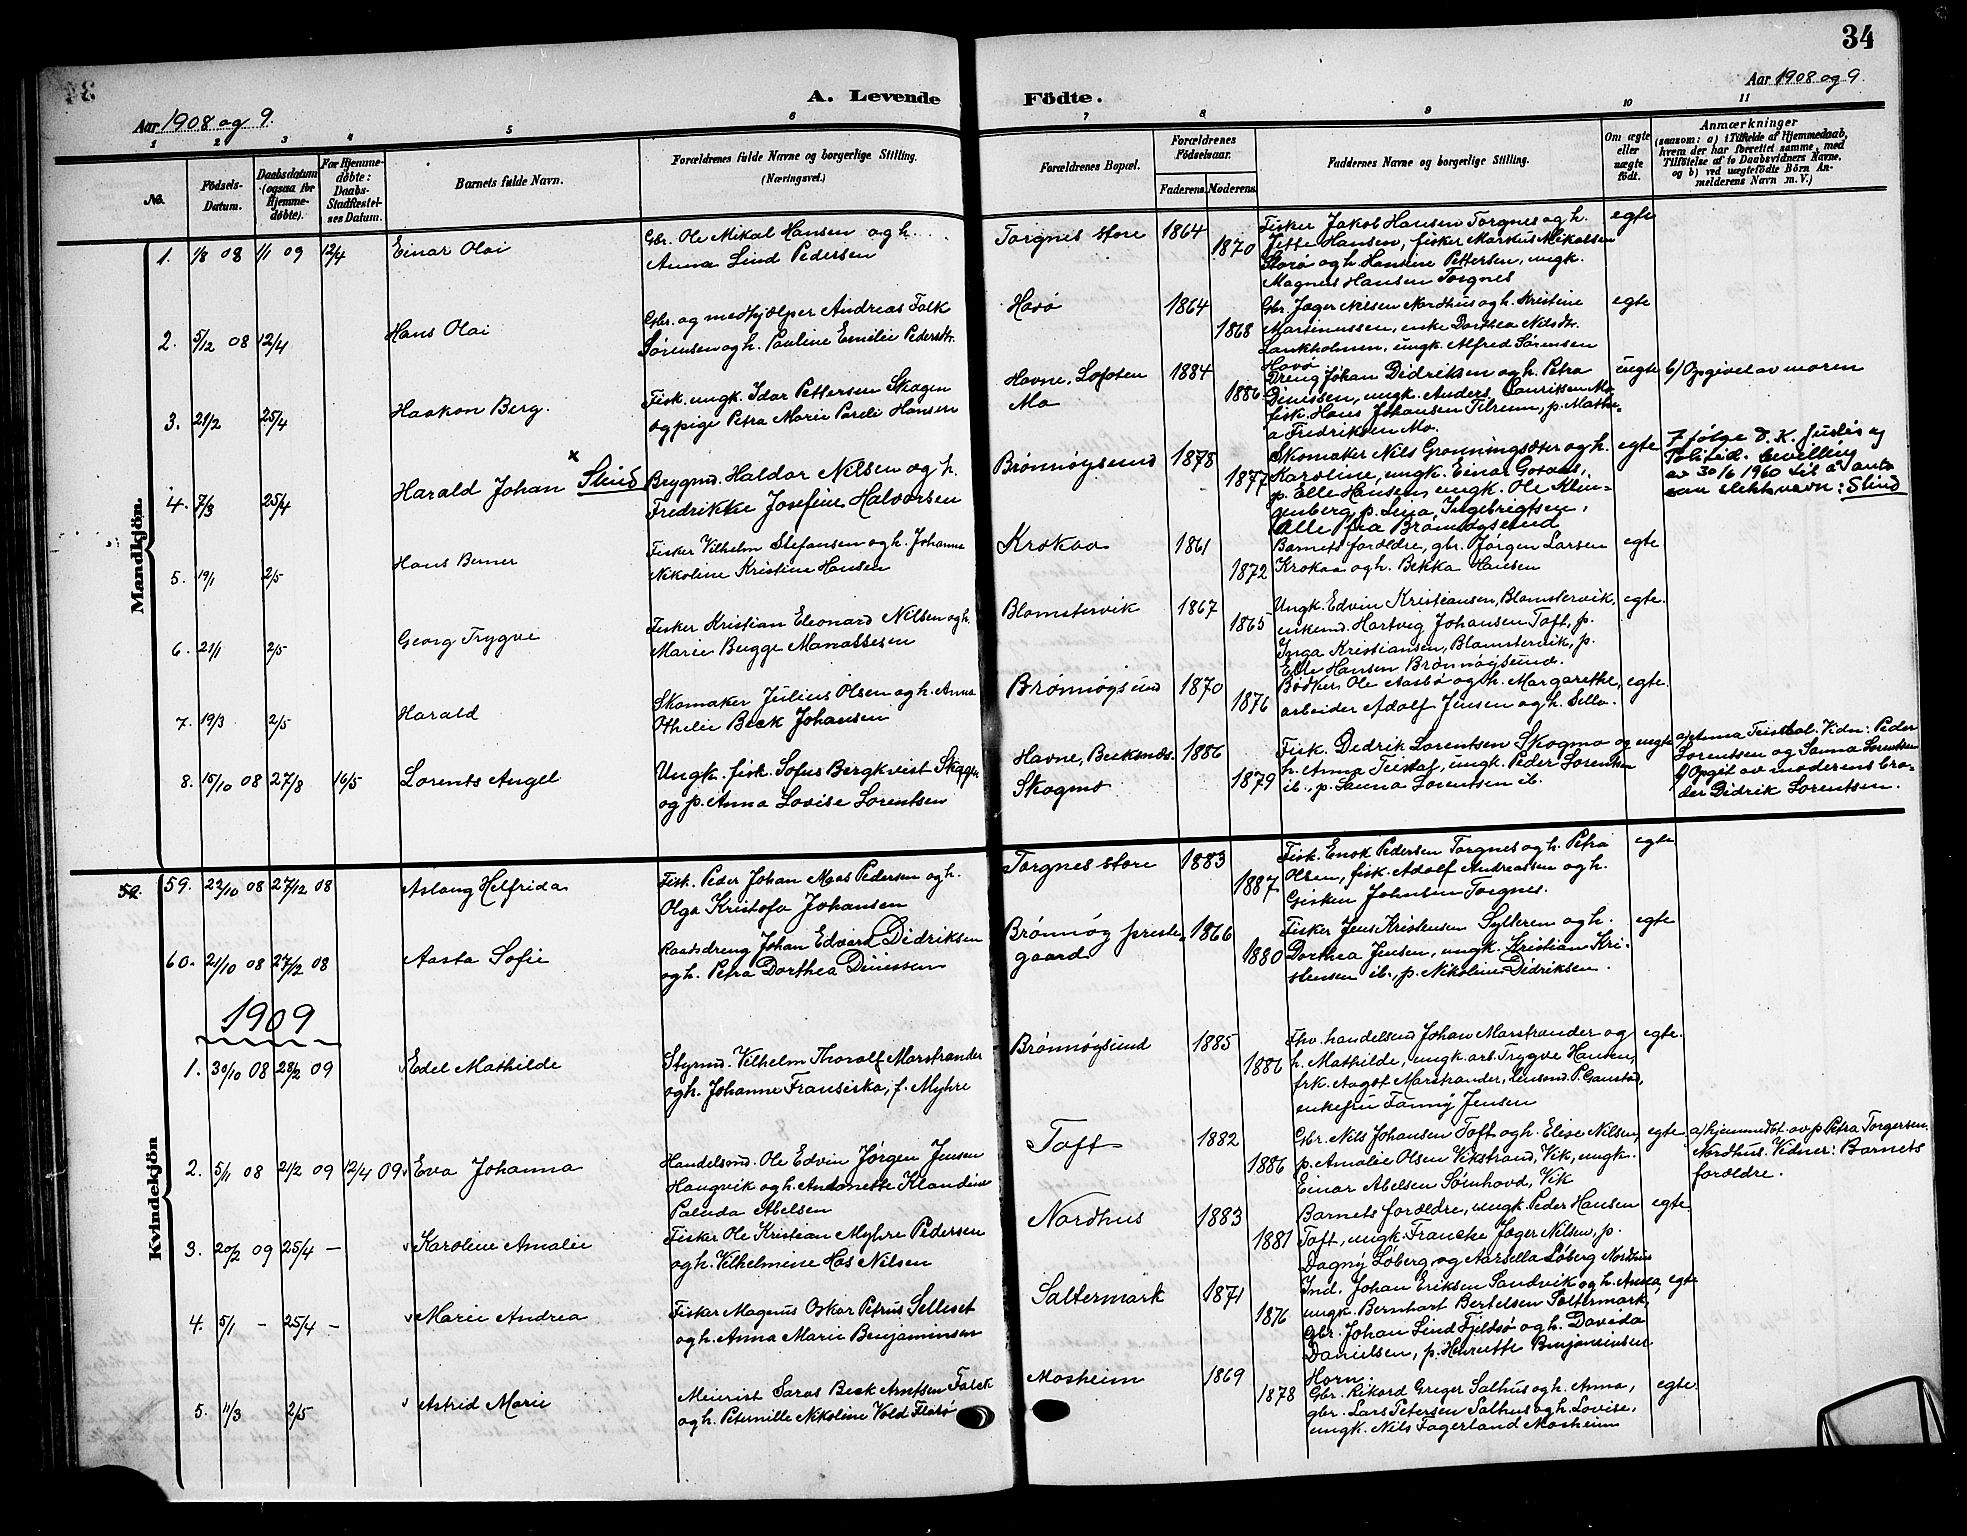 34
A. Levende Födte.
Aar 1908 og 9.
Aar 1908 og 9.
1 2 3 4 5 6 7 8 9 10 11
No.
Födsels-Datum.
Daabsdatum (ogsaa for Hjemmedøbte).
For Hjemmedøbte: Daabs-Stadfæstelses Datum.
Barnets fulde Navn.
Forældrenes fulde Navne og borgerlige Stilling. (Næringsvei.)
Forældrenes Bopæl.
Forældrenes Födselsaar.
Faderens. Moderens.
Faddernes Navne og borgerlige Stilling.
Om ægte eller uægte födt.
Anmærkninger
(saasom: a) i Tilfælde af Hjemmedaab, hvem der har forrettet samme, med Tilföielse af to Daabsvidners Navne, og b) ved uægtefödte Börn Anmelderens Navn m. V.)
Mandkjön.
1. 1/8 08 1/1 09 12/4 Einar Olai
Gbr. Ole Mikal Hansen og h.
Anna Lind Pedersen
Torgnes store 1864 1870
Fisker Jakob Hansen Torgnes og h.
Jette Hansen, fisker Markus Mikalsen
Storø og h. Hansine Pettersen, ungk.
Magnus Hansen Torgnes
egte
2. 5/12 08 12/4 Hans Olai
Gbr. og medhjælper Andreas Falk
Sørensen og h. Pauline Emilie Pedersdtr.
Havø 1864 1868
Gbr. Jæger Nilsen Nordhus og h. Kristine
Martinussen, enke Dorthea Nilsdtr.
Lankholmen, ungk. Alfred Sørensen
Havø
egte
3. 21/2 25/4 Haakon Berg.
Fisk. ungk. Idar Pettersen Skagen
og pige Petra Marie Pareli Hansen
Havne, Lofoten
Mo
1884 1886
Dreng Johan Didriksen og h. Petra
Dinissen, ungk. Anders Lauritsen Mo
fisk. Hans Johansen Tilrem, p. Mathea Fredriksen Mo.
uegte b) Opgivet av moren
4. 7/3 25/4 Harald Johan x Slind
Brygmd. Haldor Nilsen og h.
Fredrikke Josefine Halvorsen
Brønnøysund 1878 1877
Skomaker Nils Grønningsæter og h.
Karoline, ungk. Einar
p. Elle Hansen, ungk. Ole Klingenberg, p. Lina Ingebrigtsen,
Alle fra Brønnøysund
egte
I følge D. K. Justis og
Politid. bevilling
av 30/6 1960 til å anta
som slektsnavn: Slind
5. 19/1 2/5 Hans Berner
Fisker Vilhelm Stefansen og h. Johanna
Nikoline Kristine Hansen
Krokaa 1861 1872
Barnets forældre, gbr. Jørgen Larsen
Krokaa og h. Bekka Hansen
egte
6. 21/1 2/5 Georg Trygve
Fisker Kristian Eleonard Nilsen og h.
Marie Bugge Manassesen
Blomstervik 1867 1865
Ungk. Edvin Kristiansen, Blomstervik,
enkemd. Hartvig Johansen Toft, p.
Inga Kristiansen, Blomstervik, p.
Elle Hansen Brønnøysund.
egte.
7. 19/3 2/5 Harald
Skomaker Julius Olsen og h. Anna
Othelie Beck Johansen
Brønnøysund 1870 1876
Bødker Ole Aasbø og h. Margarethe,
arbeider Adolf Jensen og h. Sella.
egte.
8. 15/10 08 27/8 16/5 Lorents Angel
Ungk. fisk. Sofus Bergkvist Skagen
og p. Anna Lovise Lorentsen
Havne,
Skogmo
1886 1879
Fisk. Dedrik Lorentsen Skogmo og
h. Anna Teistdal, ungk. Peder Lorentsen
ib., p. Sanna Lorentsen ib.
uegte
a) Anna Teistdal. Vidn: Peder
Lorentsen og Sanna Lorentsen
b) Opgit av moderens broder Didrik Lorentsen.
Kvindekjön
59. 59. 22/10 08 27/12 08 Aslaug Helfrida
Fisk. Peder Johan Moas Pedersen og h.
Olga Kristofa Johansen
Torgnes store 1883 1887
Fisk. Enok Pedersen Torgnes og h. Petra
Olsen, fisk. Adolf Andreassen og h.
Gisken Johnsen Torgnes.
egte
60. 21/10 08 27/2 08 Aasta Sofie
Raadsdreng Johan Edvard Didriksen
og h. Petra Dorthea Dinissen
Brønnøy prestegaard 1866 1880
Fisker Jens Kristensen Sylteren og h.
Dorthea Jensen, ungk. Kristian Kristensen ib., p. Nikoline Didriksen.
egte
1909
1. 30/10 08 28/2 09 Edel Mathilde
Styrmd. Vilhelm Thoralf Marstrander
og h. Johanne Fransiska, f. Myhre
Brønnøysund 1885 1886
Fhv. handelsmd Johan Marstrander og
h. Mathilde, ungk. arb. Trygve Hansen,
frk. Aagot Marstrander, lensmd. P. Gaustad,
enkefru Fanny Jensen
egte.
2. 5/1 08 21/2 09 12/4 09 Eva Johanna
Handelsmd. Ole Edvin Jørgen Jensen
Haugvik og h. Antonette Klaudine
Paluda Abelsen
Toft 1882 1886
Gbr. Nils Johansen Toft og h. Elise Nilsen,
p. Amalie Olsen Vikstrand, Vik, ungk.
Einar Abelsen Sømhovd, Vik
egte
a) hjemmedøbt av p. Petra Torgersen
Nordhus. Vidner: Barnets
forældre.
3. 20/2 09 25/4 – Karoline Amalie
Fisker Ole Kristian Myhre Pedersen
og h. Vilhelmine Has Nilsen
Nordhus 1883 1881
Barnets forældre, ungk. Peder Hansen
Toft, ungk. Francke Jæger Nilsen, p.
Dagny Løberg og Aarsella Løberg Nordhus
egte.
4. 5/1 – 25/4 – Marie Andrea
Fisker Magnus Oskar Petrus Selliset
og h. Anna Marie Benjaminsen
Saltermark 1871 1876
Ind. Johan Eriksen Sandvik og h. Anna,
ungk. Bernhart Bertelsen Saltermark,
gbr. Johan Lind Fjeldsø og h. Davida
Danielsen, p. Henrette Benjaminsen
Horn.
egte
5. 11/3 2/5 Astrid Marie
Meierist Saras Beck Arntsen Falck
og h. Peternille Nikoline Vold Florø
Mosheim 1869 1878
Gbr. Rikord Greger Salhus og h. Anna,
gbr. Lars Petersen Salhus og h. Lovise,
ungk. Nils Fagerland Mosheim
egte.